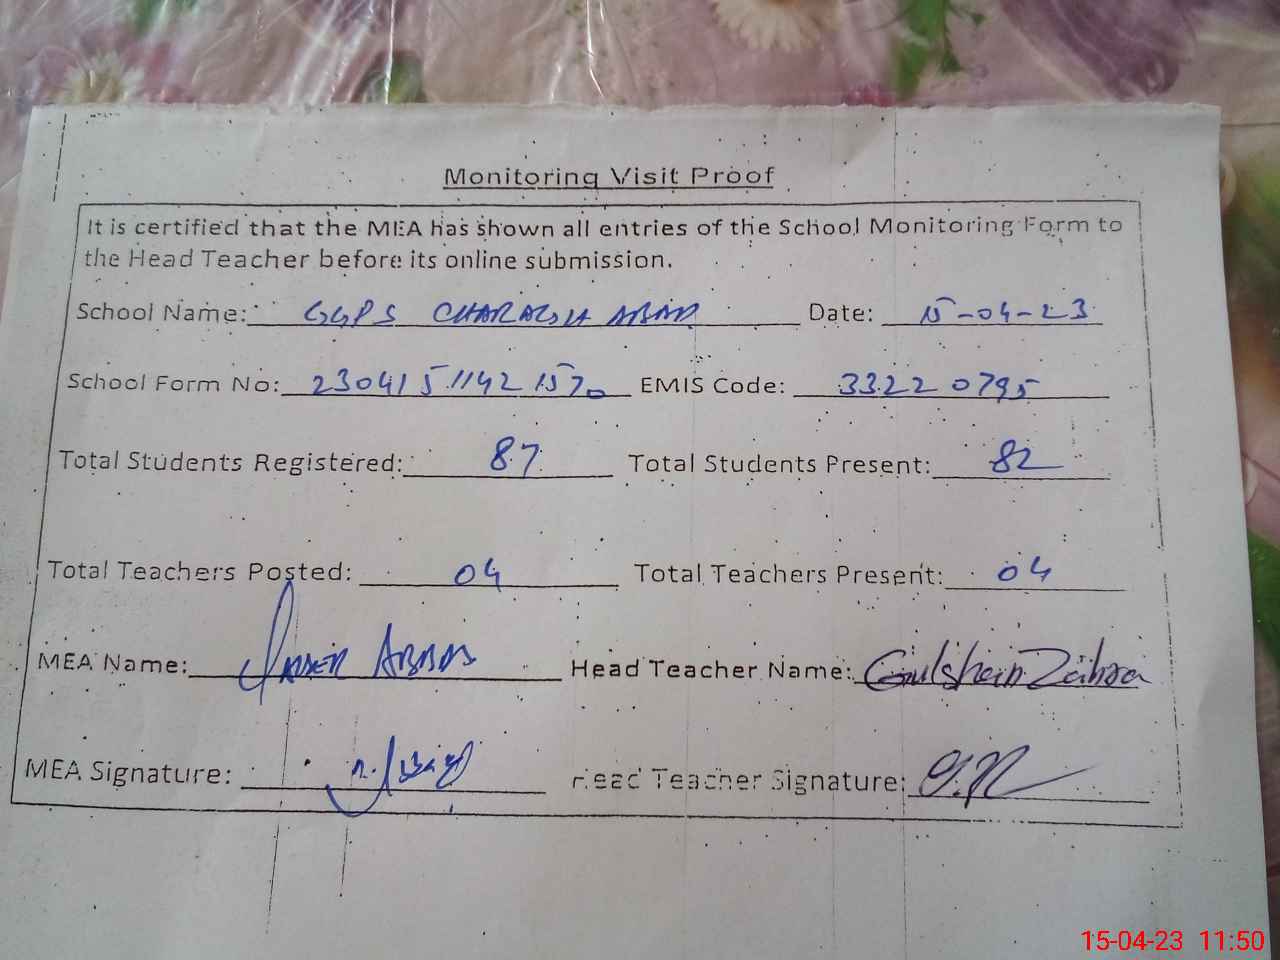 Monitoring Visit Proof
It is certified that the MEA has shown all entries of the School Monitoring Form to
the Head Teacher before its online submission.
School Name: GGPS CHARAGH ABAD Date: 15-04-23
School Form No: 23041511421570 EMIS Code: 33220795
Total Students Registered: 87 Total Students Present: 82
Total Teachers Posted: 04 Total Teachers Present: 04
MEA Name: ABBAS Head Teacher Name: Gulshan Zahra
MEA Signature: Head Teacher Signature:
15-04-23 11:50